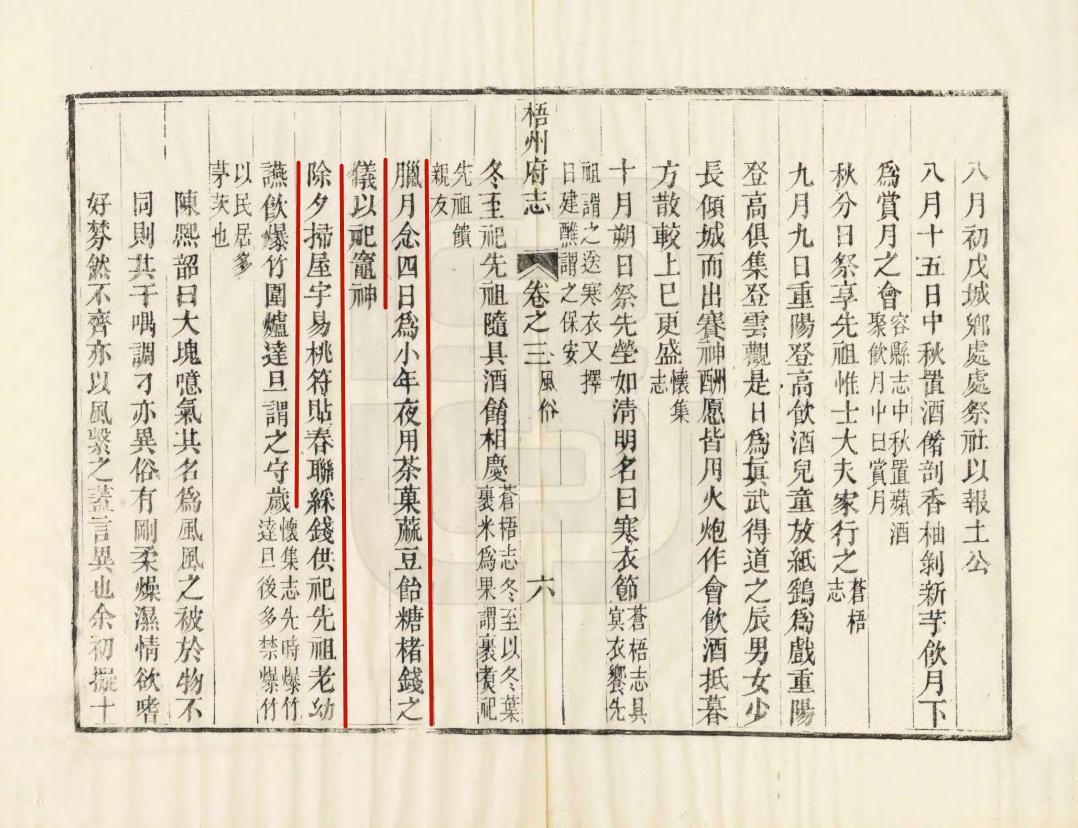 八月初戊城鄉處處祭社以報土公
八月十五日中秋置酒餚剖香柚剝新芋飲月下
為賞月之會容縣志中秋置蘋酒
聚飲月中曰賞月
秋分日祭享先祖惟士大夫家行之蒼梧
志
九月九日重陽登高飲酒兒童放紙鷂為戲重陽
登高俱集登雲觀是日為眞武得道之辰男女少
長傾城而出賽神酬愿皆用火炮作會飲酒抵暮
方散較上巳更盛懷集
志
十月朔日祭先塋如清明名曰寒衣節蒼梧志具
冥衣饗先
祖謂之送寒衣又擇
日建醮謂之保安
梧州府志
卷之三
風俗
六
冬至祀先祖隨具酒餚相慶蒼梧志冬至以冬葉
裹米為果謂裹煑祀
先祖饋
親友
臘月念四日為小年夜用茶菓蔬豆飴糖楮錢之
儀以祀竈神
除夕掃屋宇易桃符貼春聯綵錢供祀先祖老幼
讌飲爆竹圍爐達旦謂之守歲懷集志先時爆竹
達旦後多禁爆竹
以民居多
茅茨也
陳熙韶曰大塊噫氣其名為風風之被於物不
同則其于喁調刁亦異俗有剛柔燥濕情欲嗜
好棼然不齊亦以風繫之蓋言異也余初擬十